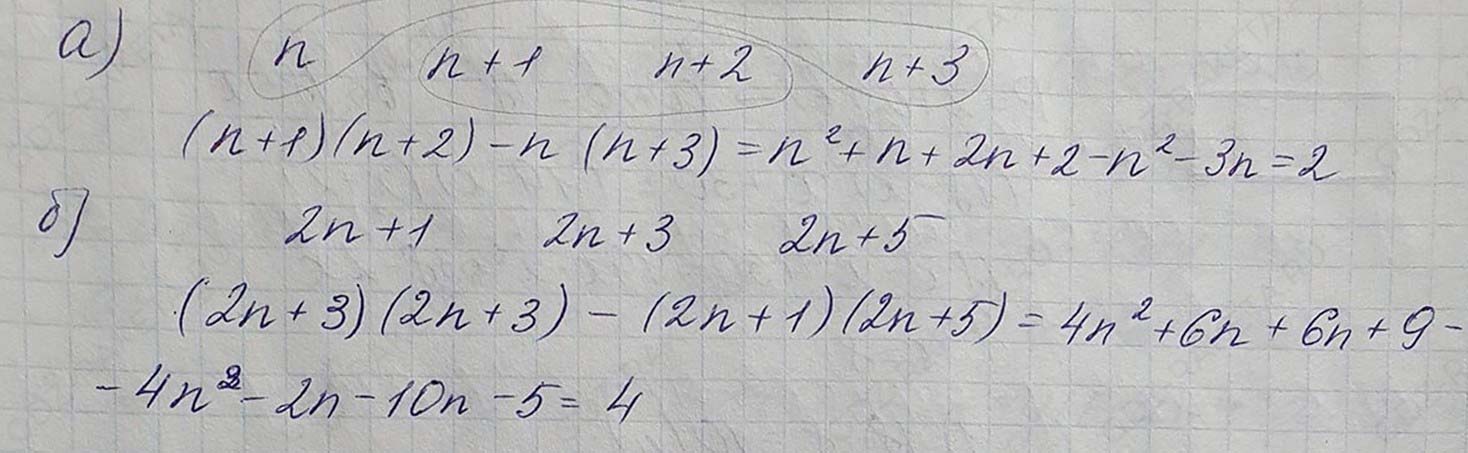 а) n n+1 n+2 n+3
(n+1)(n+2)-n (n+3)=n²+n+2n+2-n²-3n=2
б) 2n+1 2n+3 2n+5
(2n+3)(2n+3)-(2n+1)(2n+5)=4n²+6n+6n+9-
-4n²-2n-10n-5=4